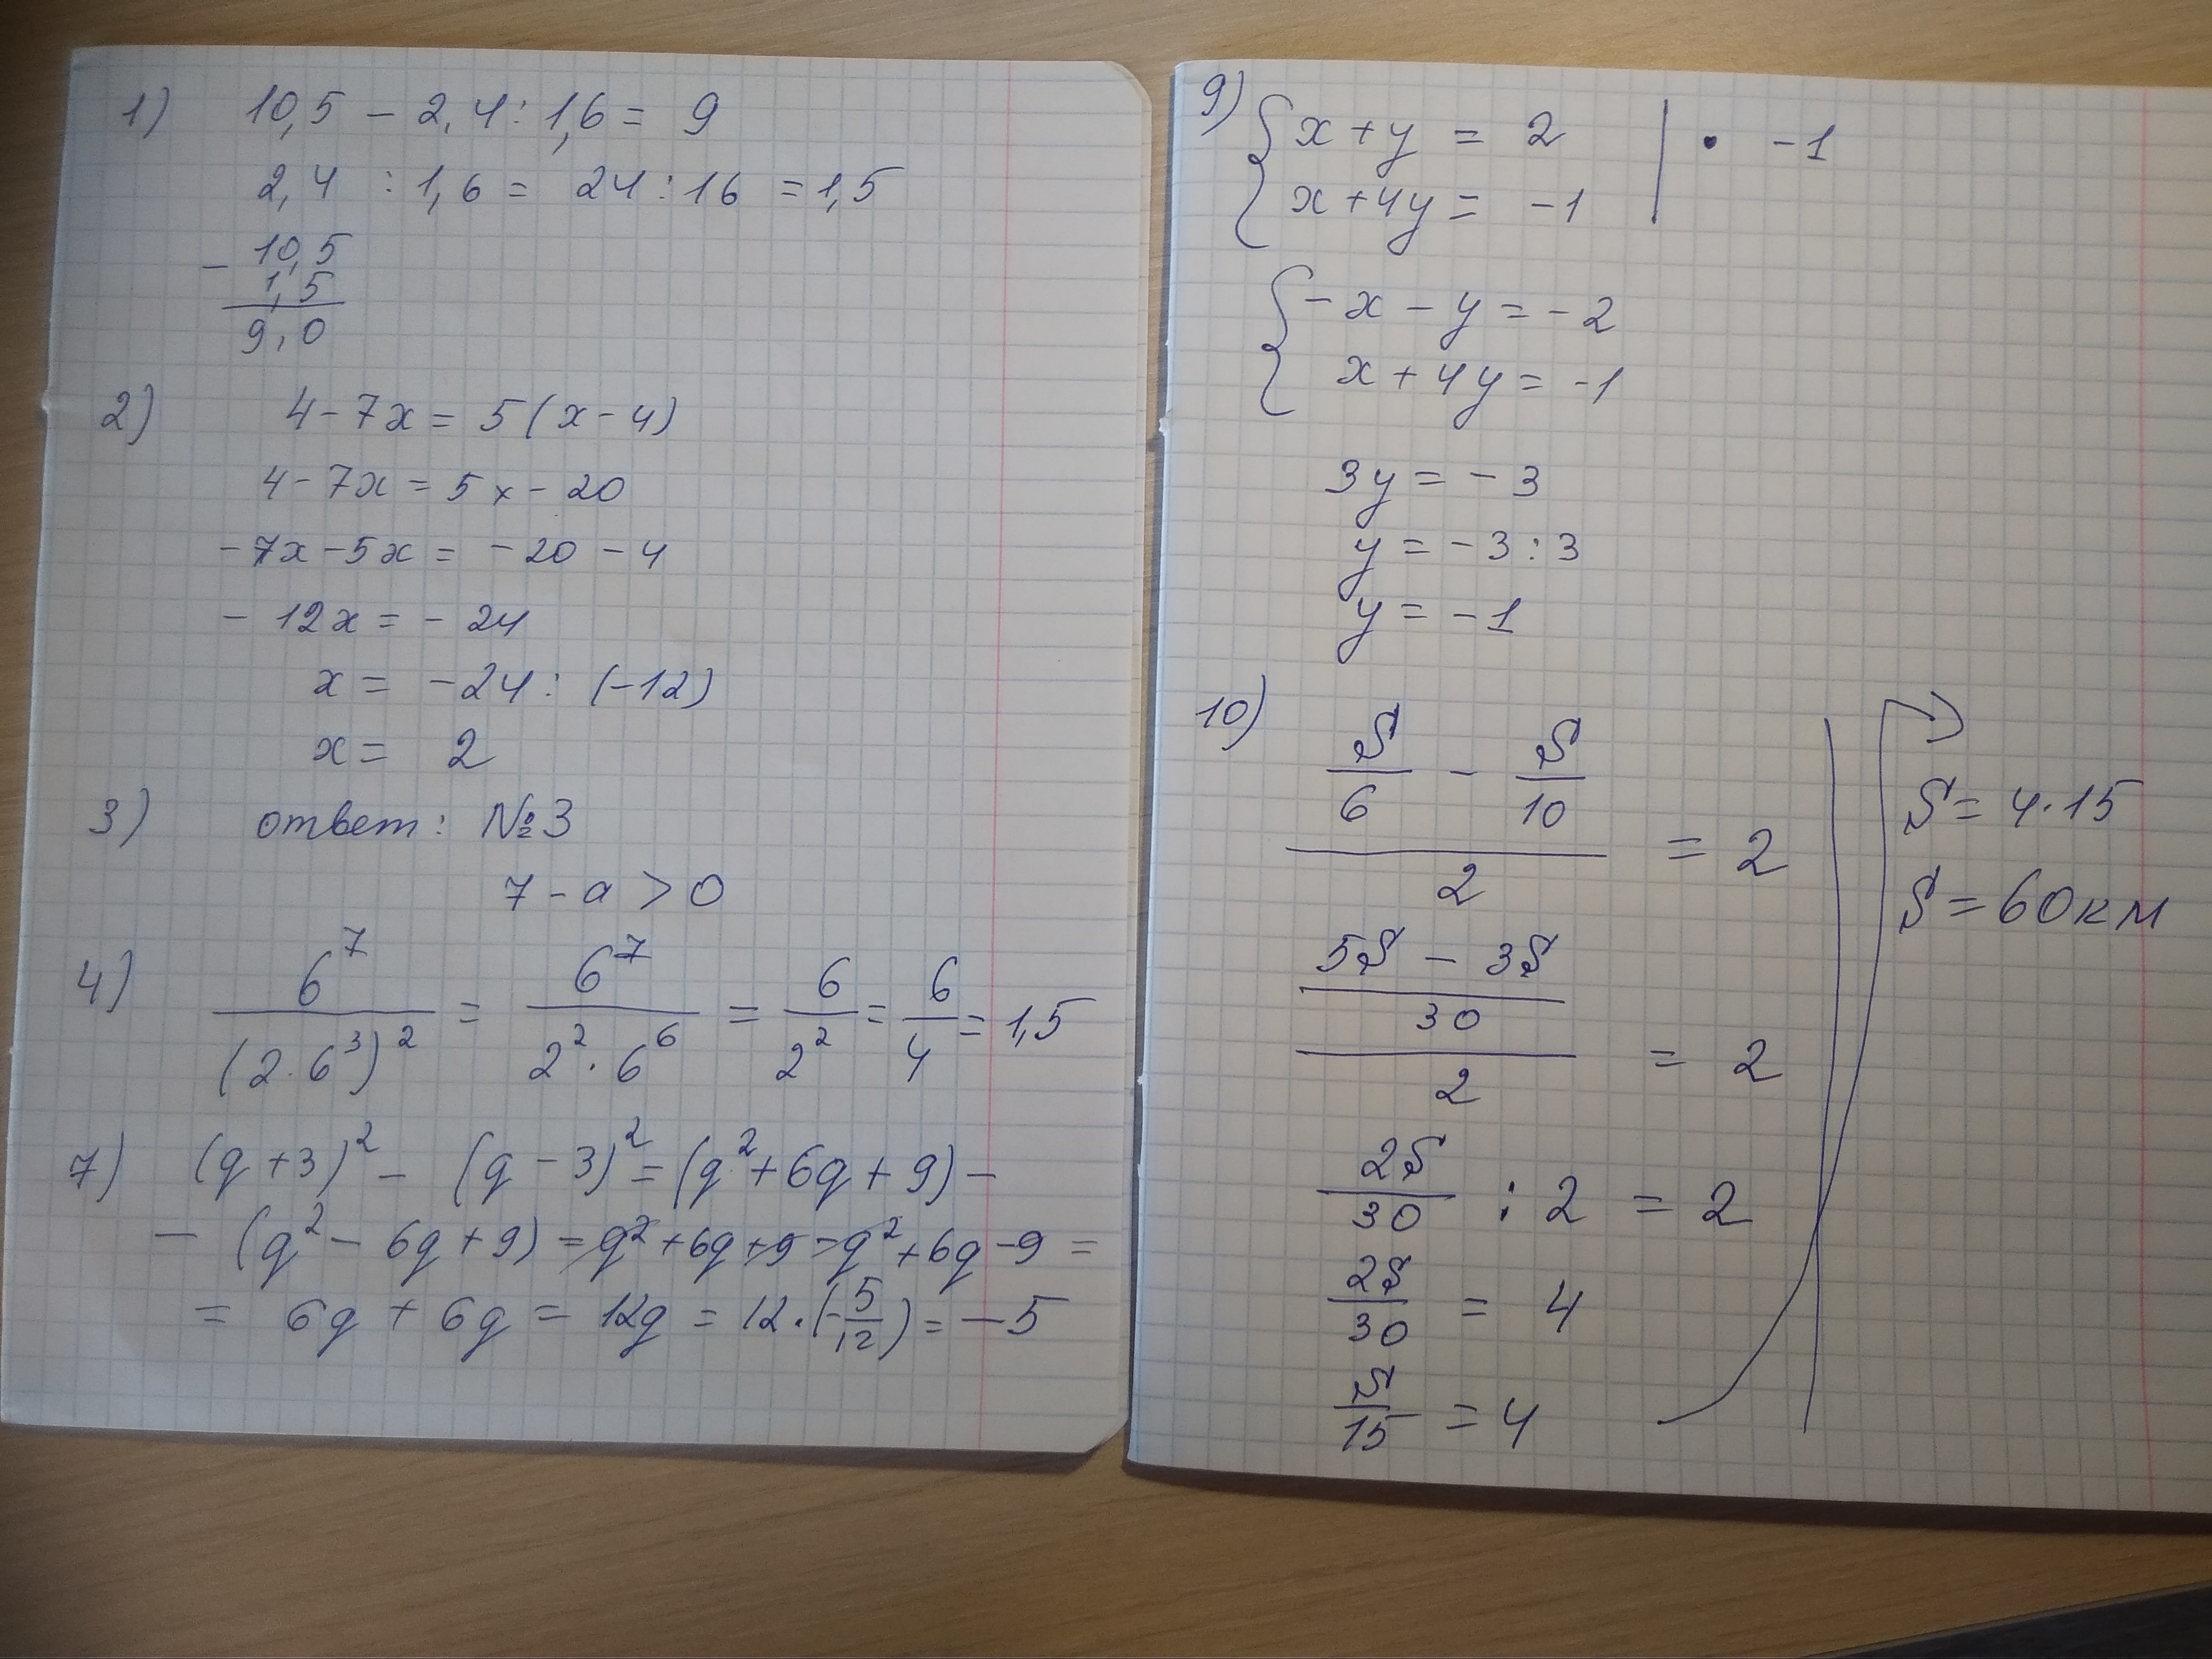 1) 10,5 - 2,4 : 1,6 = 9
2,4 : 1,6 = 24 : 16 = 1,5
- 10,5
1,5
9,0
2) 4 - 7x = 5(x - 4)
4 - 7x = 5x - 20
-7x - 5x = -20 - 4
-12x = -24
x = -24 : (-12)
x = 2
3) ответ: №3
7 - a > 0
4) 6^7 / (2·6^3)^2 = 6^7 / 2^2·6^6 = 6/2^2 = 6/4 = 1,5
7) (q + 3)^2 - (q - 3)^2 = (q^2 + 6q + 9) -
- (q^2 - 6q + 9) = q^2 + 6q + 9 - q^2 + 6q - 9 =
= 6q + 6q = 12q = 12·(-5/12) = -5
9) { x + y = 2 | · -1
x + 4y = -1
{ -x - y = -2
x + 4y = -1
3y = -3
y = -3 : 3
y = -1
10) S/6 - S/10
2
= 2
5S - 3S
30
2
= 2
2S/30 : 2 = 2
2S/30 = 4
S/15 = 4
S = 4·15
S = 60км